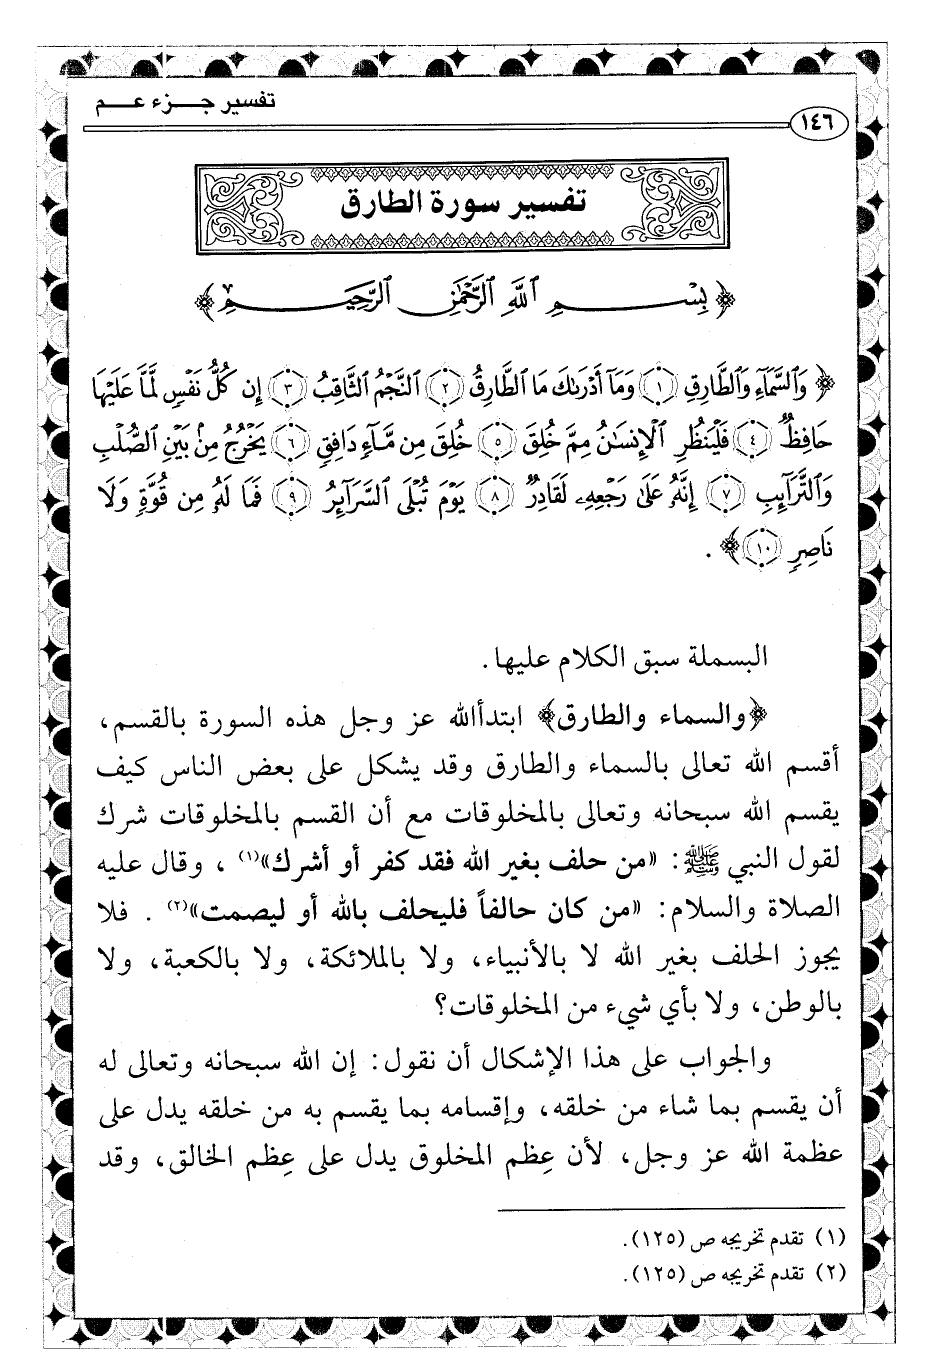 تفسير جـــزء عـــم
١٤٦
تفسير سورة الطارق
﴿ بِسْمِ ٱللَّهِ ٱلرَّحْمَٰنِ ٱلرَّحِيمِ ﴾
﴿ وَٱلسَّمَآءِ وَٱلطَّارِقِ ١ وَمَآ أَدْرَىٰكَ مَا ٱلطَّارِقُ ٢ ٱلنَّجْمُ ٱلثَّاقِبُ ٣ إِن كُلُّ نَفْسٍ لَّمَّا عَلَيْهَا
حَافِظٌ ٤ فَلْيَنظُرِ ٱلْإِنسَٰنُ مِمَّ خُلِقَ ٥ خُلِقَ مِن مَّآءٍ دَافِقٍ ٦ يَخْرُجُ مِنۢ بَيْنِ ٱلصُّلْبِ
وَٱلتَّرَآئِبِ ٧ إِنَّهُۥ عَلَىٰ رَجْعِهِۦ لَقَادِرٌ ٨ يَوْمَ تُبْلَى ٱلسَّرَآئِرُ ٩ فَمَا لَهُۥ مِن قُوَّةٍ وَلَا
نَاصِرٍ ١٠ ﴾ .
البسملة سبق الكلام عليها.
﴿والسماء والطارق﴾ ابتدأالله عز وجل هذه السورة بالقسم،
أقسم الله تعالى بالسماء والطارق وقد يشكل على بعض الناس كيف
يقسم الله سبحانه وتعالى بالمخلوقات مع أن القسم بالمخلوقات شرك
لقول النبي ﷺ: «من حلف بغير الله فقد كفر أو أشرك»(١) ، وقال عليه
الصلاة والسلام: «من كان حالفاً فليحلف بالله أو ليصمت»(٢) . فلا
يجوز الحلف بغير الله لا بالأنبياء، ولا بالملائكة، ولا بالكعبة، ولا
بالوطن، ولا بأي شيء من المخلوقات؟
والجواب على هذا الإشكال أن نقول: إن الله سبحانه وتعالى له
أن يقسم بما شاء من خلقه، وإقسامه بما يقسم به من خلقه يدل على
عظمة الله عز وجل، لأن عِظم المخلوق يدل على عِظم الخالق، وقد
(١) تقدم تخريجه ص (١٢٥).
(٢) تقدم تخريجه ص (١٢٥).